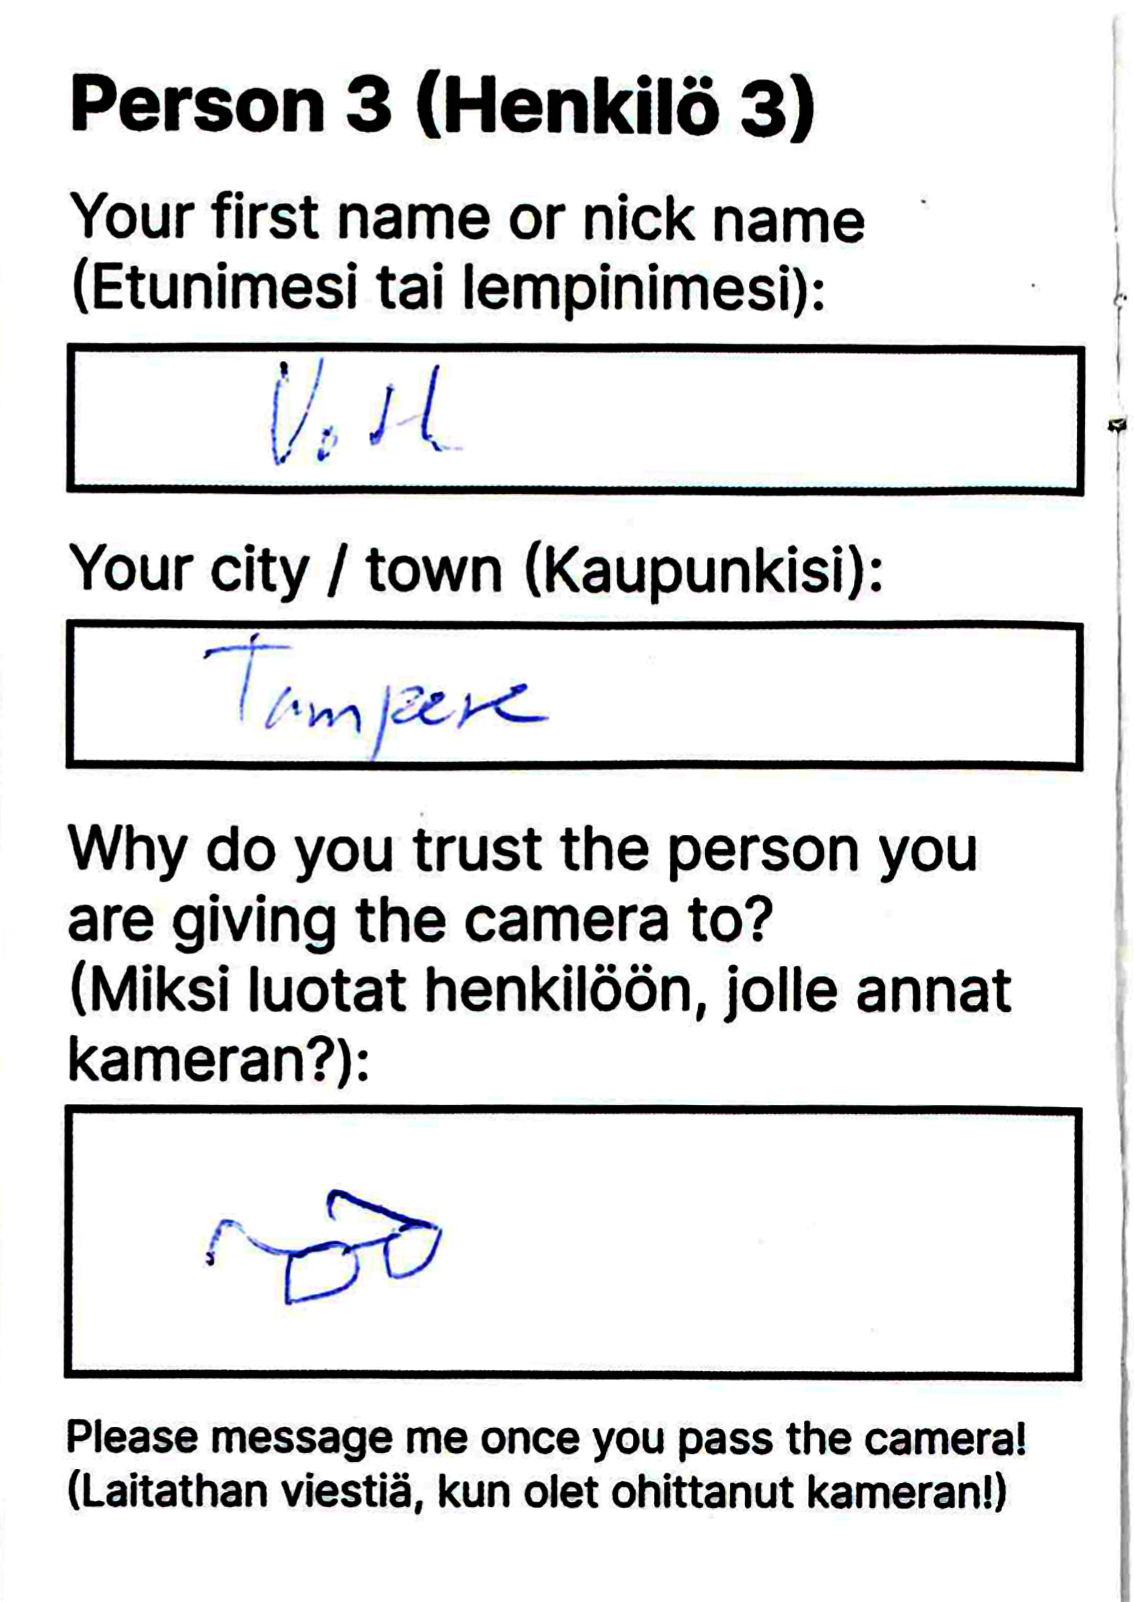 Person 3 (Henkilö 3)
Your first name or nick name
(Etunimesi tai lempinimesi):
Your city / town (Kaupunkisi):
Tampere
Why do you trust the person you
are giving the camera to?
(Miksi luotat henkilöön, jolle annat
kameran?):
Please message me once you pass the camera!
(Laitathan viestiä, kun olet ohittanut kameran!)